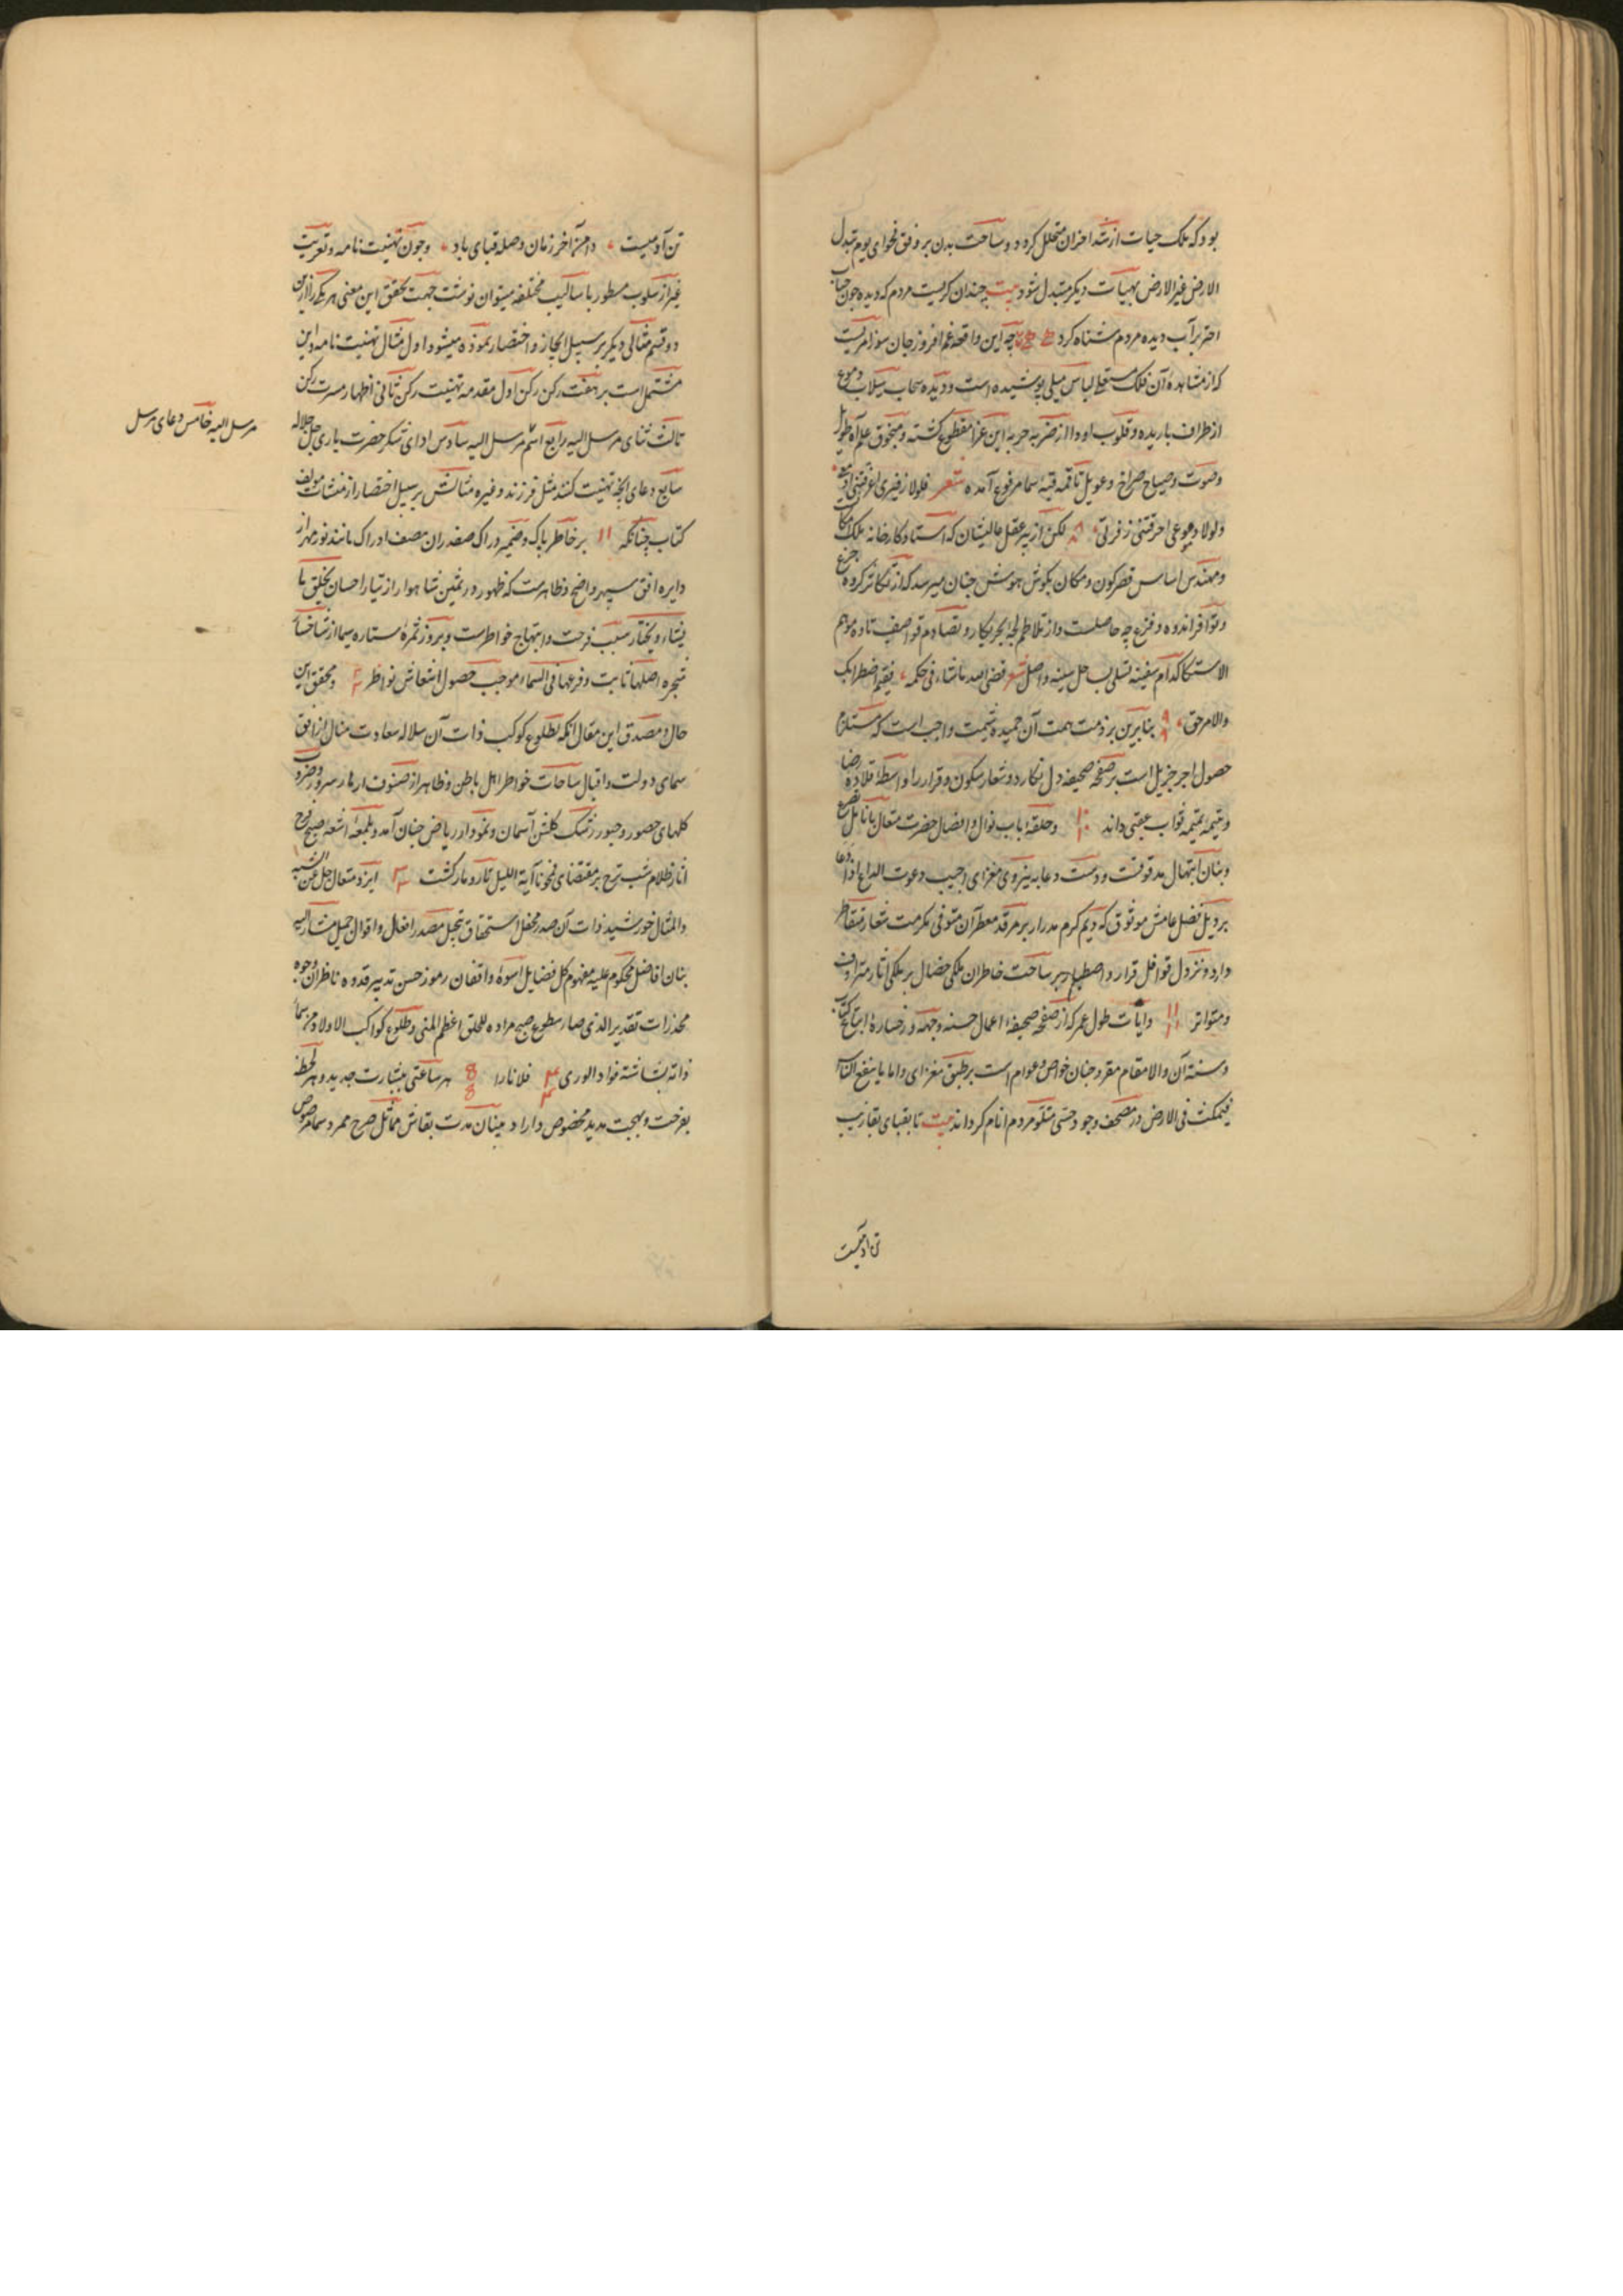 بود که ملک حیات از شد احزان متخلل کردد و ساحت بدن بر وفق فحوای یوم تبدل
الارض غیر الارض بهیات دیکر متبدل شود بیت چندان کریست مردم که دیده جون حباب
اختر بر آب دیده مردم شناه کرد چه این واقعه غم افروز جان سوز امریست
که از مشاهده آن فلک لباس نیلی پوشیده است و دیده سحاب سیلاب دموع
از اطراف باریده و قلوب اودا از ضربه حربه این عزا منقطع کشته و منجوق علم آه طویل
وصوت و صیاح صراخ و عویل تا قمه قبه سما مرفوع آمده شعر فلولا زفیری اغرقتنی ادمعی
ولولا دموعی احرقتنی زفرتی ۸ لکن از پیر عقل عالیشان که استاد کارخانه ملک
و مهندس اساس قصر کون و مکان بکوش هوش جنان میرسد که از تکاثر کروه جزع
و توافر اندوه و فزع چه حاصلست و از تلاطم لجه بحر بکا و تصادم قواصف تاوه
الاستکا کدام سفینه تسلی بساحل سینه واصل شعر قضی الله ماشاء فی حکمه ففیم اضطرابک
والامر حق ۹ بنابرین بر ذمت همت آن حمیده شیمت واجب است که مستلزم
حصول اجر جزیل است بر صفحه صحیفه دل نکارد و شعار سکون و قرار را واسطه قلاده رضا
و یتیمه تمیمه ثواب عقبی داند ۱۰ و حلقه باب نوال و افضال حضرت متعال بانامل تضرع
و بنان ابتهال مدقوقست و دست دعا به نیروی مغزای اجیب دعوت الداع اذا دعا
بر ذیل فضل عامش موثوق که دیم کرم مدرار بر مرقد معطر آن متوفی مکرمت شعار متقاطر
دارد و نزول قوافل قرار و اصطبار بر ساحت خاطر آن ملکی خصال بر ملکی آثار مترادف
و متواتر ۱۱ و آیات طول عمر که از صفحه صحیفه اعمال حسنه و جبهه و رخساره
و سنه آن والا مقام مقرو جنان خواص و عوام است بر طبق مغزای و اما ما ینفع الناس
فیمکث فی الارض در مصحف وجود متلو مردم انام کرداند بیت تا بقبای بقا زیب
تن آدمیست
تن آدمیست دامن آخر زمان وصله قبای باد و جون تهنیت نامه و تعزیت
غیر از اسلوب مسطور باسالیب مختلفه میتوان نوشت جهت تحقق این معنی هر یک را ازین
دو قسم مثالی دیکر بر سبیل ایجاز و اختصار نموده میشود اول مثال تهنیت نامه و این
مشتمل است بر هفت رکن رکن اول مقدمه تهنیت رکن ثانی اظهار مسرت رکن
ثالث ثنای مرسل الیه رابع اسم مرسل الیه سادس ادای شکر حضرت باری جل جلاله
مرسل الیه خامس دعای مرسل
سابع دعای آنچه تهنیت کنند مثل فرزند و غیره مثالش بر سبیل اختصار از منشات مولف
کتاب جنانکه ۱۱ بر خاطر پاک و ضمیر دراک صفدران صف ادراک مانند نور مهر از
دایره افق سپهر واضح و ظاهرست که ظهور در ثمین شاهوار از تیار احسان یخلق ما
یشاء و یختار سبب فرحت و ابتهاج خواطرست و بروز ثمره ستاره سیما از شاخسار
شجره اصلها ثابت و فرعها فی السماء موجب حصول انتعاش نواظر ۲ و محقق این
حال و مصدق این مقال آنکه بطلوع کوکب ذات آن سلاله سعادت منال از افق
سمای دولت و اقبال ساحات خواطر اهل باطن و ظاهر از صنوف ازهار سرور و ضروب
کلهای حضور و حبور رشک کلشن آسمان و نمودار ریاض جنان آمد و بلمعه اشعه صبح فرح
آثار ظلام شب ترح بر مقتضای فمحونا آیة اللیل تار و مار کشت ۳ ایزد متعال جل عن الشبه
والمثال خورشید ذات آن صدر محفل استحقاق تبجیل مصدر افعال و اقوال جمیل مشار الیه
بنان افاضل محکوم علیه مفهوم کل فضایل اسوه واقفان رموز حسن تدبیر قدوه ناظران وجوه
مخدرات تقدیر الذی صار سطوع صبح مراده للخلق اعظم المنی و طلوع کواکب الاولاد من سما
ذاته بشاشة فواد الوری ۴ فلانا را هر ساعتی ببشارت جدید و هر لحظه
بفرحت و بهجت مدید مخصوص دارد بنیان مدت بقاش مماثل صرح ممرد